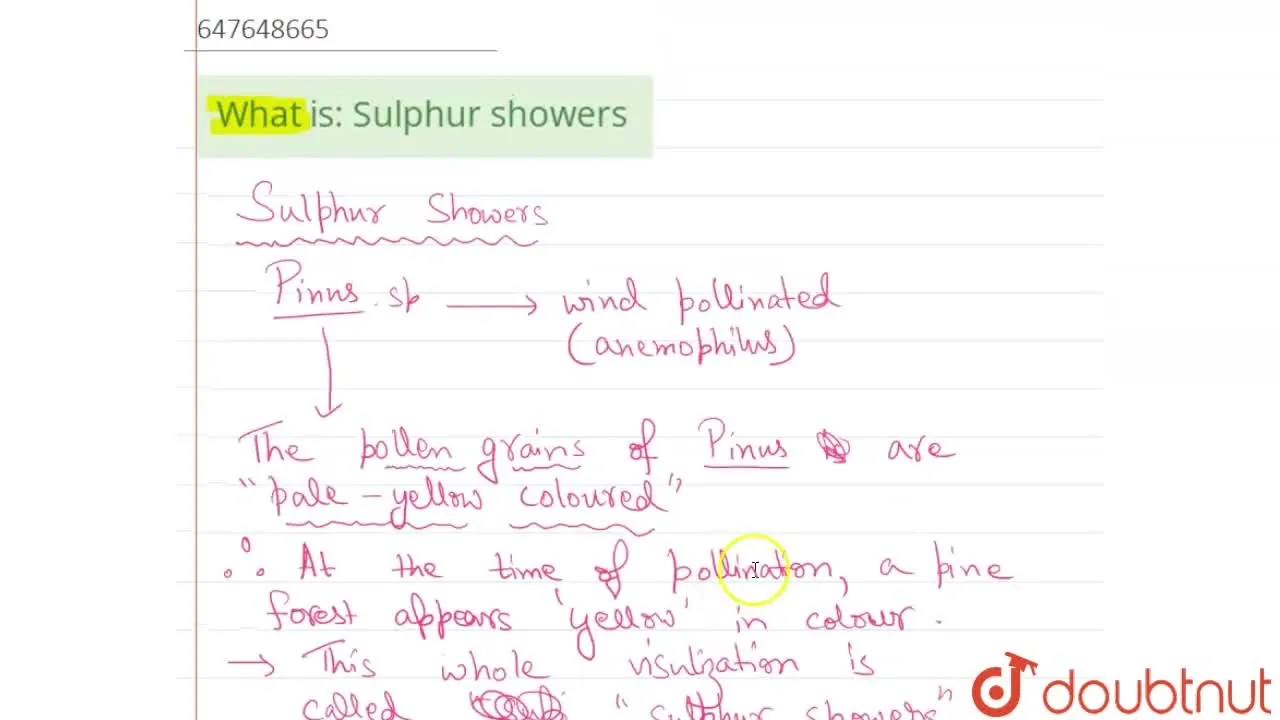 647648665
What is: Sulphur showers
Sulphur Showers
Pinus. sp → wind pollinated
(anemophilus)
The pollen grains of Pinus are
"pale-yellow coloured"
∴ At the time of pollination, a pine
forest appears 'yellow' in colour.
→ This whole visulization is
called "sulphur showers"
doubtnut